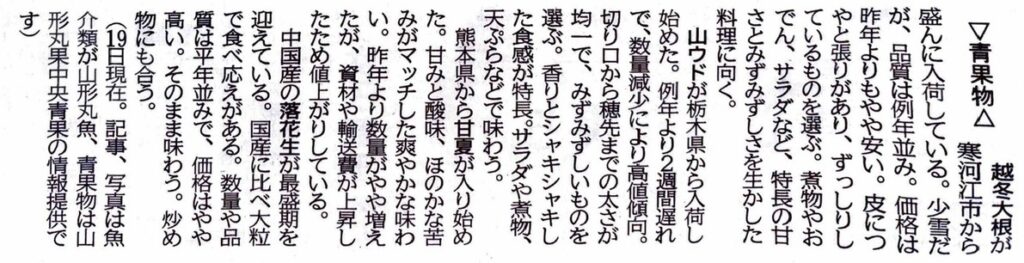 ▽青果物△
越冬大根が
寒河江市から
盛んに入荷している。少雪だ
が、品質は例年並み。価格は
昨年よりもやや安い。皮につ
やと張りがあり、ずっしりし
ているものを選ぶ。煮物やお
でん、サラダなど、特長の甘
さとみずみずしさを生かした
料理に向く。
山ウドが栃木県から入荷し
始めた。例年より2週間遅れ
で、数量減少により高値傾向。
切り口から穂先までの太さが
均一で、みずみずしいものを
選ぶ。香りとシャキシャキし
た食感が特長。サラダや煮物、
天ぷらなどで味わう。
熊本県から甘夏が入り始め
た。甘みと酸味、ほのかな苦
みがマッチした爽やかな味わ
い。昨年より数量がやや増え
たが、資材や輸送費が上昇し
たため値上がりしている。
中国産の落花生が最盛期を
迎えている。国産に比べ大粒
で食べ応えがある。数量や品
質は平年並みで、価格はやや
高い。そのまま味わう。炒め
物にも合う。
（19日現在。記事、写真は魚
介類が山形丸魚、青果物は山
形丸果中央青果の情報提供で
す）